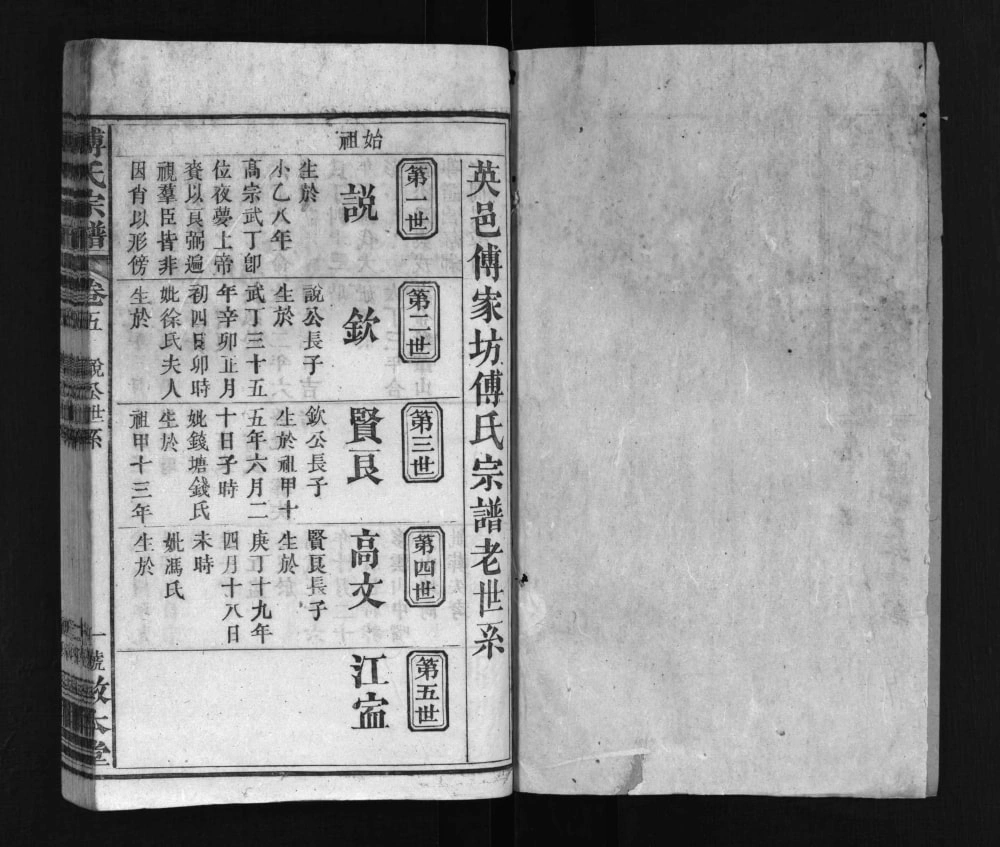 英邑傅家坊傅氏宗譜老世系
始祖
第一世
說
生於
小乙八年
高宗武丁卽
位夜夢上帝
賚以良弼遍
視羣臣皆非
因肖以形傍
第二世
欽
說公長子
生於
武丁三十五
年辛卯正月
初四日卯時
妣徐氏夫人
生於
第三世
賢良
欽公長子
生於祖甲十
五年六月二
十日子時
妣錢塘錢氏
生於
祖甲十三年
第四世
高文
賢良長子
生於
庚丁十九年
四月十八日
未時
妣馮氏
生於
第五世
江寍
傅氏宗譜
卷五
說公世系
一號
敦本堂